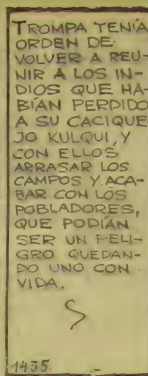 TROMPA TENÍA
ORDEN DE
VOLVER A REU-
NIR A LOS IN-
DIOS QUE HA-
BÍAN PERDIDO
A SU CACIQUE
JO KULQUI, Y
CON ELLOS
ARRASAR LOS
CAMPOS Y ACA-
BAR CON LOS
POBLADORES,
QUE PODÍAN
SER UN PELI-
GRO QUEDAN-
DO UNO CON
VIDA.
S
1435